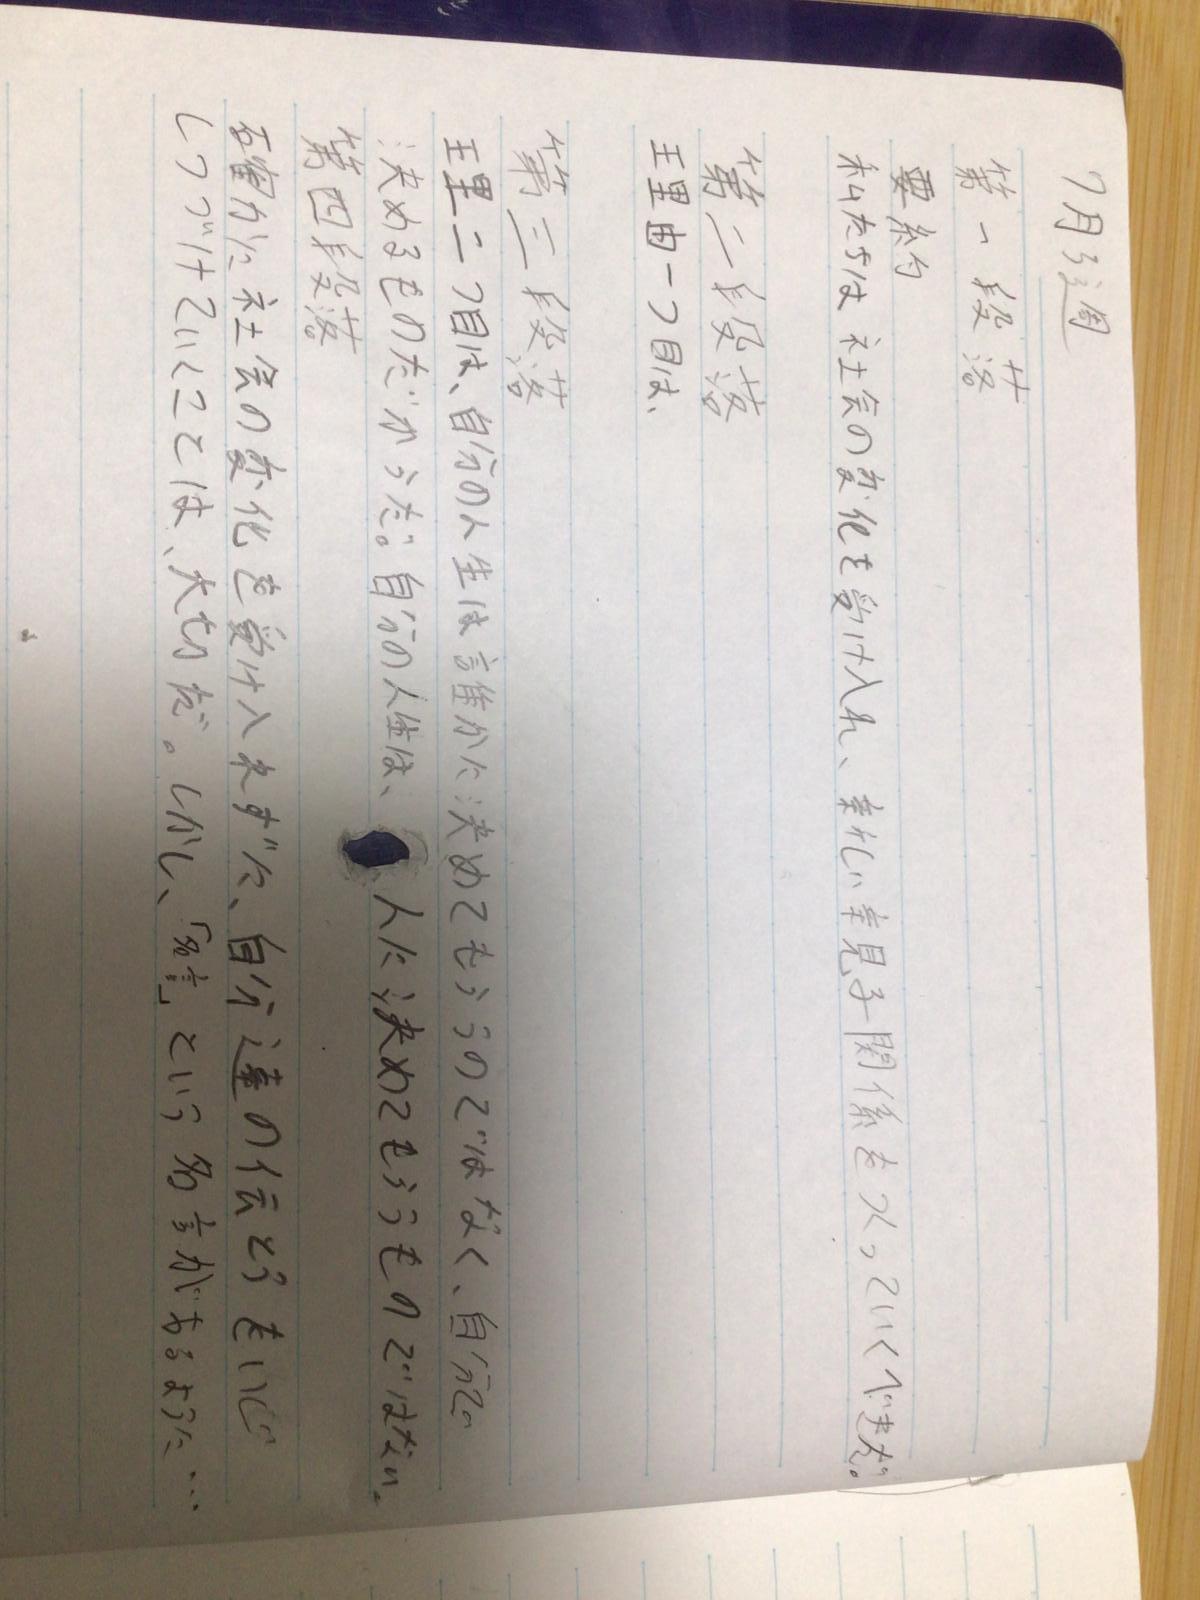 7月3週
第一段落
要約
私たちは社会の変化を受け入れ、新しい親子関係をつくっていくべきだ。
第二段落
理由一つ目は、
第三段落
理二つ目は、自分の人生は誰かに決めてもらうのではなく、自分で
決めるものだからだ。自分の人生は、人に決めてもらうものではない。
第四段落
確かに社会の変化を受け入れずに、自分達の伝とうをいじ
しつづけていくことは、大切だ。しかし、「名言」という名言があるように…